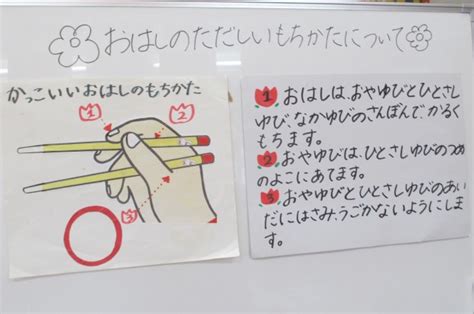 おはしのただしいもちかたについて
かっこいいおはしのもちかた
1
2
3
1 おはしは、おやゆびとひとさし
ゆび、なかゆびのさんぼんで かるく
もちます。
2 おやゆびは、ひとさしゆびのつめ
のよこにあてます。
3 おやゆびとひとさしゆびのあい
だにはさみ、うごかないようにしま
す。